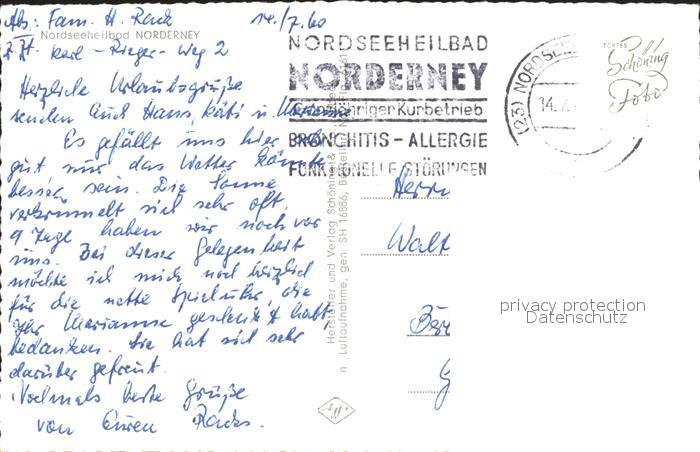 Abs: Fam. H. Rack 14./7.60
Nordseeheilbad NORDERNEY
z.Zt. Karl-Rieger-Weg 2
Herzliche Urlaubsgrüße
senden Euch Hans, Käti u. Marianne
Es gefällt uns hier
gut nur das Wetter könnte
besser sein. Die Sonne
verkrümelt sich sehr oft.
9 Tage haben wir noch vor
uns. Bei dieser Gelegenheit
möchte ich mich noch herzlich
für die nette Spieluhr, die
Ihr Marianne geschenkt habt
bedanken. Sie hat sich sehr
darüber gefreut.
Nochmals beste Grüße
von Euren Racks.
NORDSEEHEILBAD
NORDERNEY
Ganzjähriger Kurbetrieb
BRONCHITIS - ALLERGIE
FUNKTIONELLE STÖRUNGEN
(23) NORDSEE
14.7.
ECHTES
Schöning
Foto
Hersteller und Verlag Schöning &
Luftaufnahme, gen. SH 16886,
Herrn
Walt
privacy protection
Datenschutz